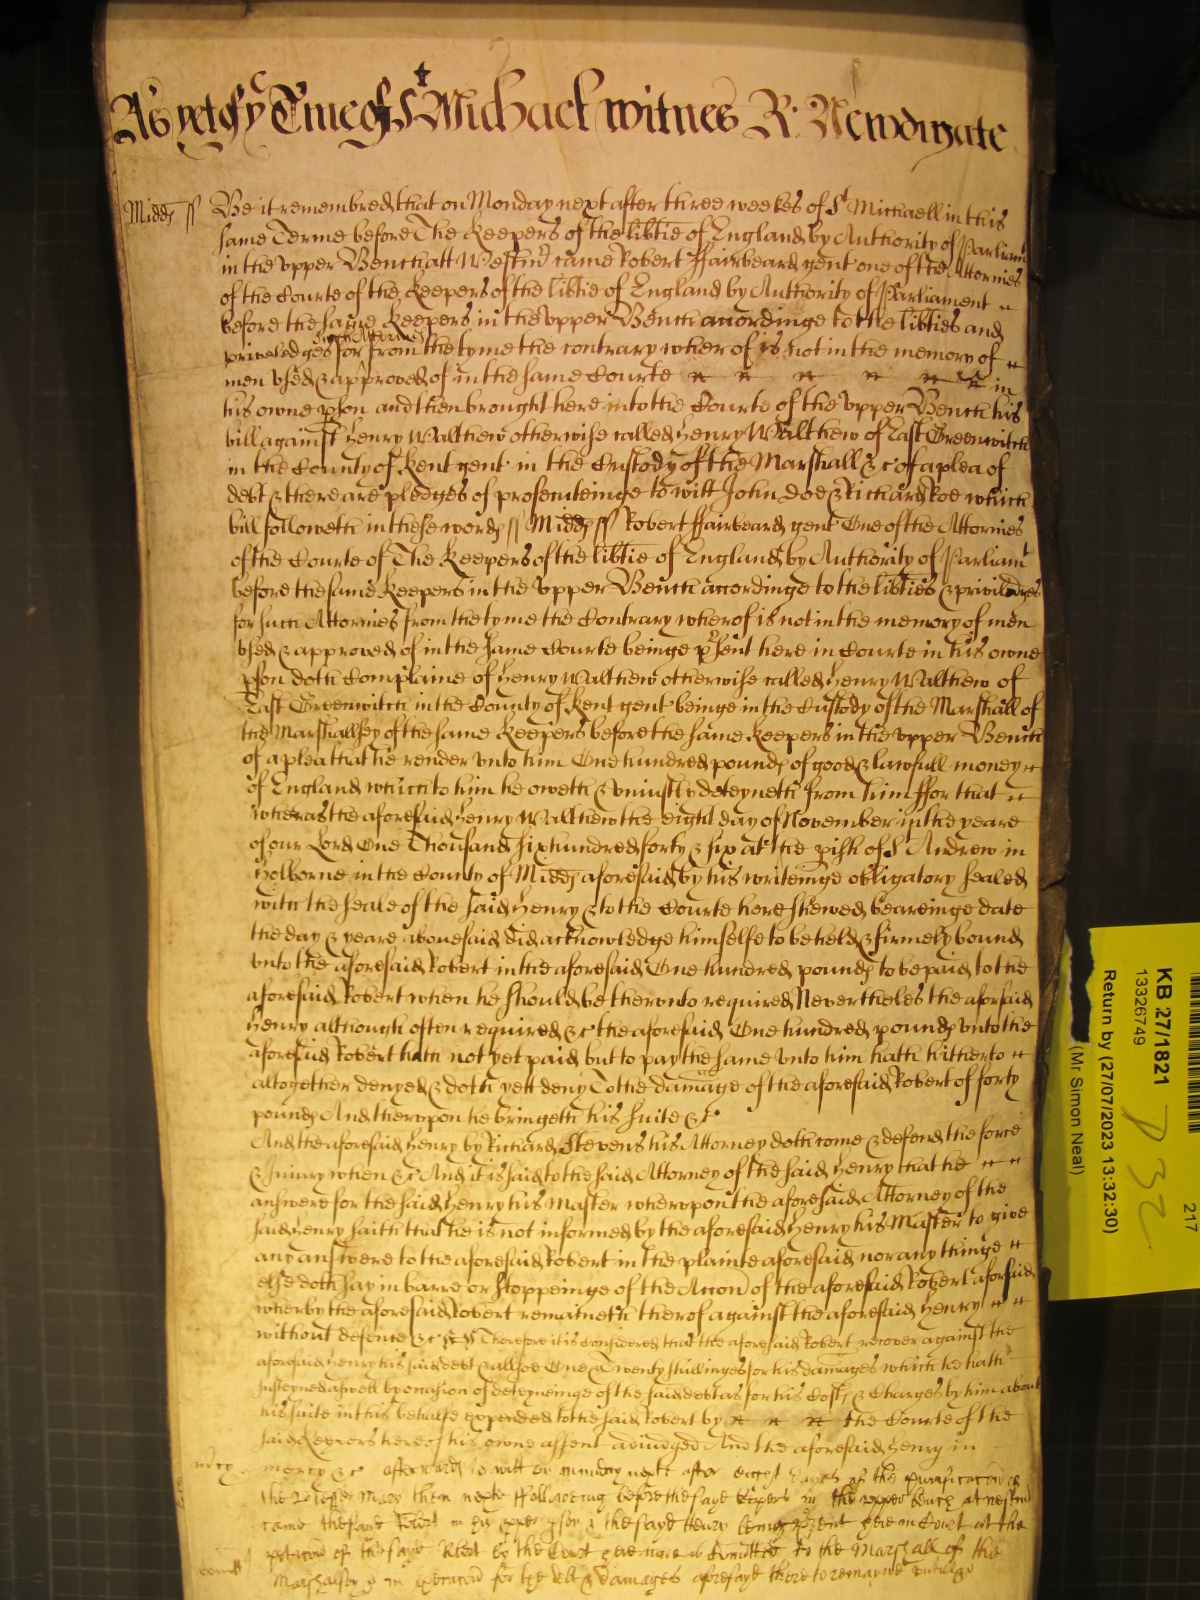 As yet of ye Tme of St Michael witnes R: Newdigate
Midds ss Be it remembred that on Monday next after three weekes of St Michaell in this
same Terme before The Keepers of the libtie of England by Authority of Parliamt
in the vpper Bench att Westmr came Robert ffairbeard gent one of the Attornies
of the Courte of the Keepers of the libtie of England by Authority of Parliament
before the same Keepers in the vpper Bench accordinge to the libties and
such Attornies
priviledges for from the tyme the contrary wherof is not in the memory of
men vsed & approved of in the same Courte in
his owne pson and then brought here into the Courte of the vpper Bench his
bill against Henry Walthew otherwise called Henry Walthew of East Greenwitch
in the County of Kent gent in the Custody of the Marshall &c of a plea of
debt & there are pledges of prosecuteinge to witt John Doe & Richard Roe which
bill followeth in these words ss Midds ss Robert ffairbeard gent One of the Attornies
of the Courte of The Keepers of the libtie of England by Authority of Parliamt
before the same Keepers in the vpper Bench accordinge to the libties & priviledges
for such Attornies from the tyme the Contrary wherof is not in the memory of men
vsed & approved of in the same Courte beinge psent here in Courte in his owne
pson doth Complaine of Henry Walthew otherwise called Henry Walthew of
East Greenwitch in the County of Kent gent beinge in the Custody of the Marshall of
the Marshallsey of the same Keepers before the same Keepers in the vpper Bench
of a plea that he render vnto him One hundred pounds of good & lawfull money
of England which to him he oweth & vniustly deteyneth from him ffor that
wheras the aforesaid Henry Walthew the eight day of November in the yeare
of our Lord One Thousand six hundred forty & six at the pish of St Andrew in
Holborne in the County of Midds aforesaid by his writeinge obligatory sealed
with the seale of the said Henry & to the Courte here shewed beareinge date
the day & yeare abouesaid did acknowledge himselfe to be held & firmely bound
vnto the aforesaid Robert in the aforesaid One hundred pounds to be paid to the
aforesaid Robert when he should be therevnto required Nevertheles the aforsaid
Henry although often required &c the aforesaid One hundred pounds vnto the
aforesaid Robert hath not yet paid but to pay the same vnto him hath hitherto
altogether denyed & doth yett deny To the damage of the aforesaid Robert of forty
pounds And therevpon he bringeth his suite &c
And the aforesaid Henry by Richard Stevens his Attorney doth come & defend the force
& Iniury when &c And it is said to the said Attorney of the said Henry that he
answere for the said Henry his Master wherevpon the aforesaid Attorney of the
said Henry saith that he is not informed by the aforesaid Henry his Master to give
any answere to the aforesaid Robert in the plainte aforesaid nor any thinge
else doth say in barre or stoppeinge of the Accon of the aforesaid Robert aforsaid
wherby the aforesaid Robert remaineth therof against the aforesaid Henry
without defence &c Therefore it is considered that the aforesaid Robert recover against the
aforesaid Henry his said debt & allsoe One & Twenty shillinges for his damages which he hath
susteyned aswell by occasion of deteyneinge of the said debt as for his Costs & Charges by him about
his suite in this behalfe expended to the said Robert by the Courte of the
said Keepers here of his owne assent adiudged And the aforesaid Henry in
mercy &c afterwards to witt on munday next after eight dayes of the purificacon of
the Blessed Mary then next ffollowing before the sayd Keepers in the vpper Bench at westmr
came the sayd Robert in his pper pson & the sayd Henry being psent here in Court at the
peticon of the sayd Robt by the Court here is Comitted to the Marshall of the
Marshalsey in execucon for the debt & damages aforesayd there to remayne
KB 27/1821
13326749
Return by (27/07/2023 13:32:30)
(Mr Simon Neal)
217